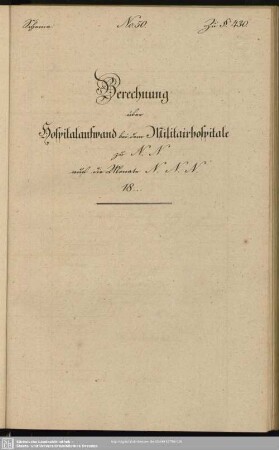 Schema No 50. Zu § 430.
Berechnung
über
Hospitalaufwand bei dem Militairhospitale
zu N. N.
auf die Monate N. N. N.
18..